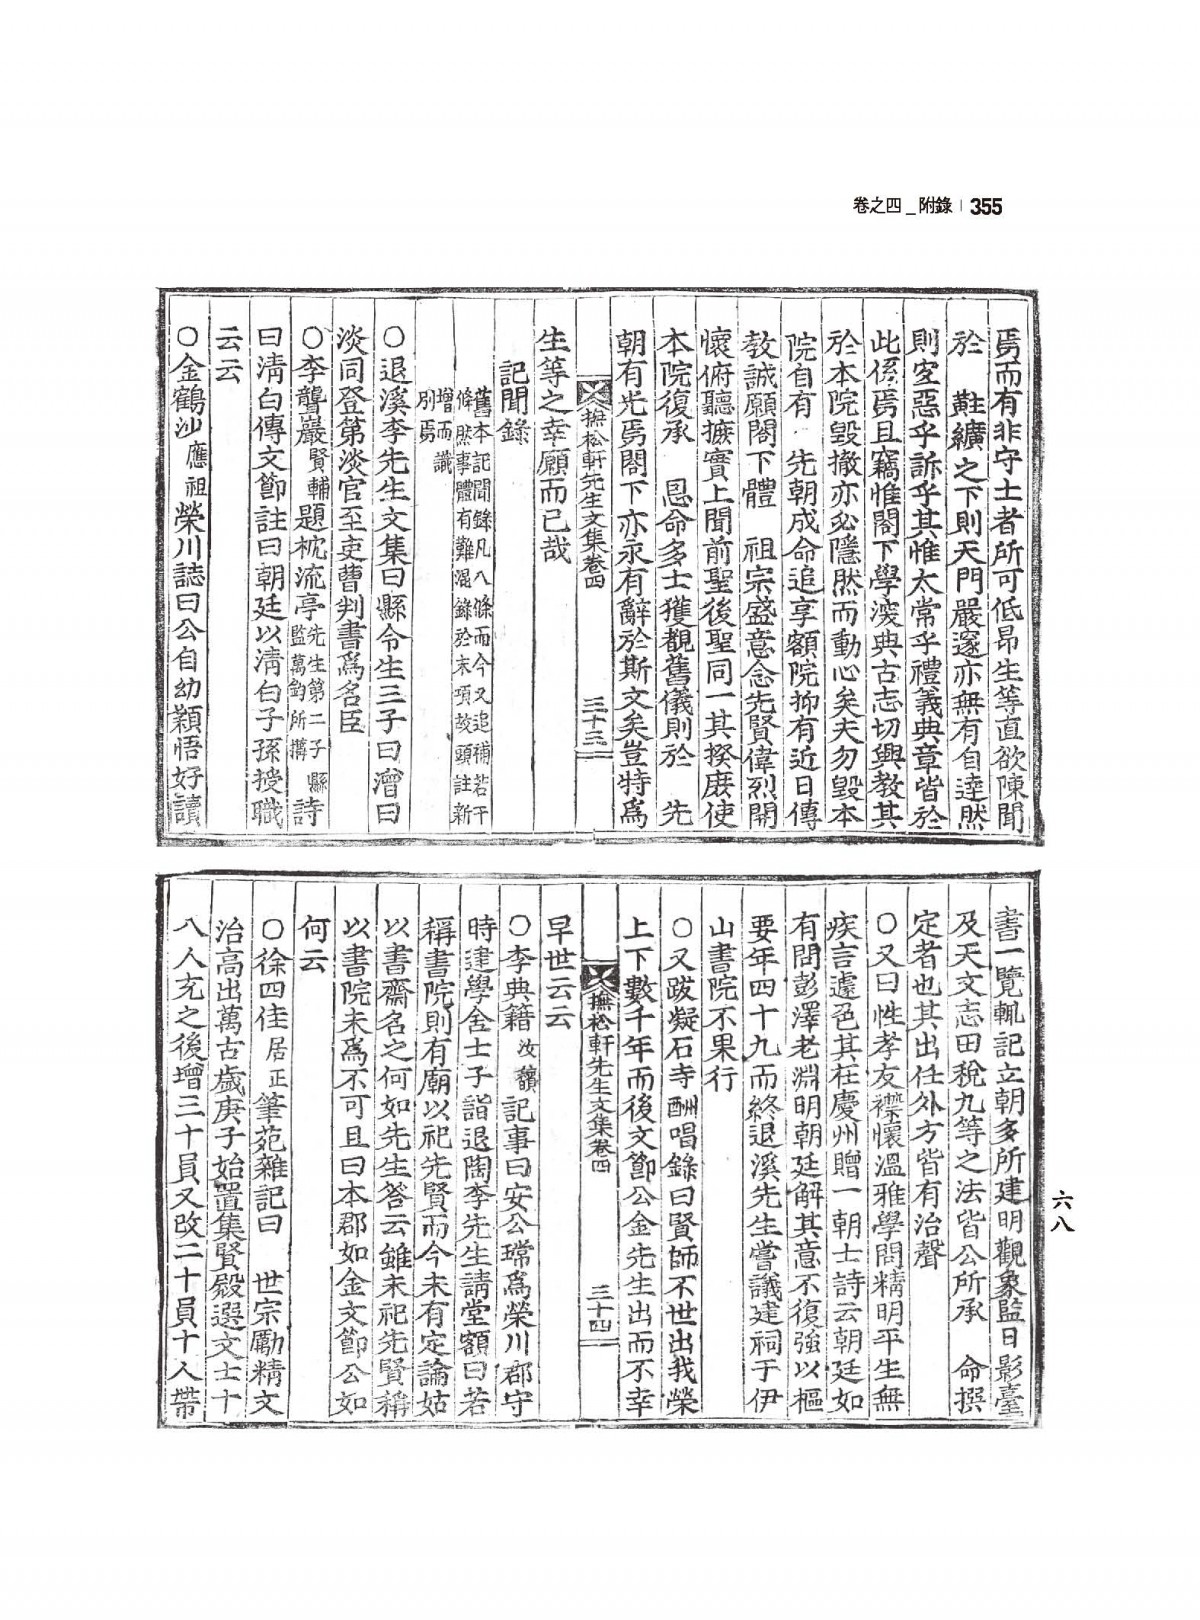 卷之四 _ 附錄 | 355
焉而有非守土者所可低昂生等直欲陳聞
於 黈纊之下則天門嚴邃亦無有自達然
則空惡乎訴乎其惟太常乎禮義典章皆於
此係焉且竊惟閤下學邃典古志切興教其
於本院毀撤亦必隱然而動心矣夫勿毀本
院自有 先朝成命追享額院抑有近日傳
敎誠願閤下體 祖宗盛意念先賢偉烈開
懷俯聽摭實上聞前聖後聖同一其揆庶使
本院復承 恩命多士獲覩舊儀則於 先
朝有光焉閤下亦永有辭於斯文矣豈特爲
撫松軒先生文集卷四 三十三
生等之幸願而已哉
記聞錄
舊本記聞錄凡八條而今又追補若干
條然事體有難混錄於末項故頭註新
增而識
別焉
○退溪李先生文集曰縣令生三子曰澮曰
淡同登第淡官至吏曹判書爲名臣
○李聾巖賢輔題枕流亭先生第二子縣監萬鈞所搆詩
曰淸白傳文節註曰朝廷以淸白子孫授職
云云
○金鶴沙應祖榮川誌曰公自幼穎悟好讀
書一覽輒記立朝多所建明觀象監日影臺
及天文志田稅九等之法皆公所承 命撰
定者也其出任外方皆有治聲
○又曰性孝友襟懷溫雅學問精明平生無
疾言遽色其在慶州贈一朝士詩云朝廷如
有問彭澤老淵明朝廷解其意不復強以樞
要年四十九而終退溪先生嘗議建祠于伊
山書院不果行
○又跋凝石寺酬唱錄曰賢師不世出我榮
上下數千年而後文節公金先生出而不幸
撫松軒先生文集卷四 三十四
早世云云
○李典籍汝馪記事曰安公瑺爲榮川郡守
時建學舍士子詣退陶李先生請堂額曰若
稱書院則有廟以祀先賢而今未有定論姑
以書齋名之何如先生答云雖未祀先賢稱
以書院未爲不可且曰本郡如金文節公如
何云
○徐四佳居正筆苑雜記曰 世宗勵精文
治高出萬古歲庚子始置集賢殿選文士十
八人充之後增三十員又改二十員十人帶
六八